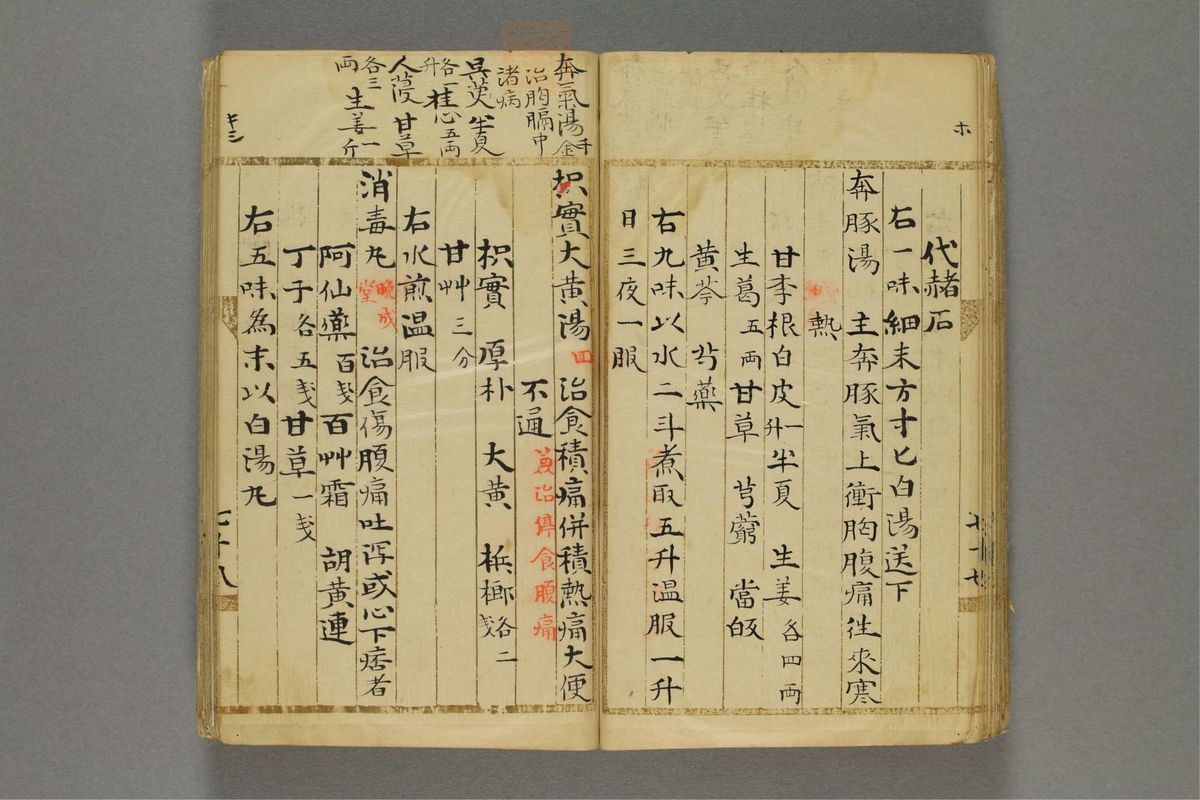 ホ
代赭石
右一味細末方寸匕白湯送下
奔豚湯 主奔豚氣上衝胸腹痛往來寒
熱
甘李根白皮一升半夏 生姜各四両
生葛五両甘草 芎藭 當皈
黄芩 芍藥
右九味以水二斗煮取五升温服一升
日三夜一服
七十七
奔氣湯千金
治胸膈中
諸病
呉茱 半夏
各一升桂心五両
人葠 甘草
各三両 生姜一斤
キ三
枳實大黄湯回 治食積痛併積熱痛大便
不通 兼治停食腹痛
枳實 厚朴 大黄 梹榔各二戔
甘艸三分
右水煎温服
消毒丸晩成堂 治食傷腹痛吐泻或心下痞者
阿仙藥百戔百艸霜 胡黄連
丁子各五戔甘草一戔
右五味為末以白湯丸
七十八